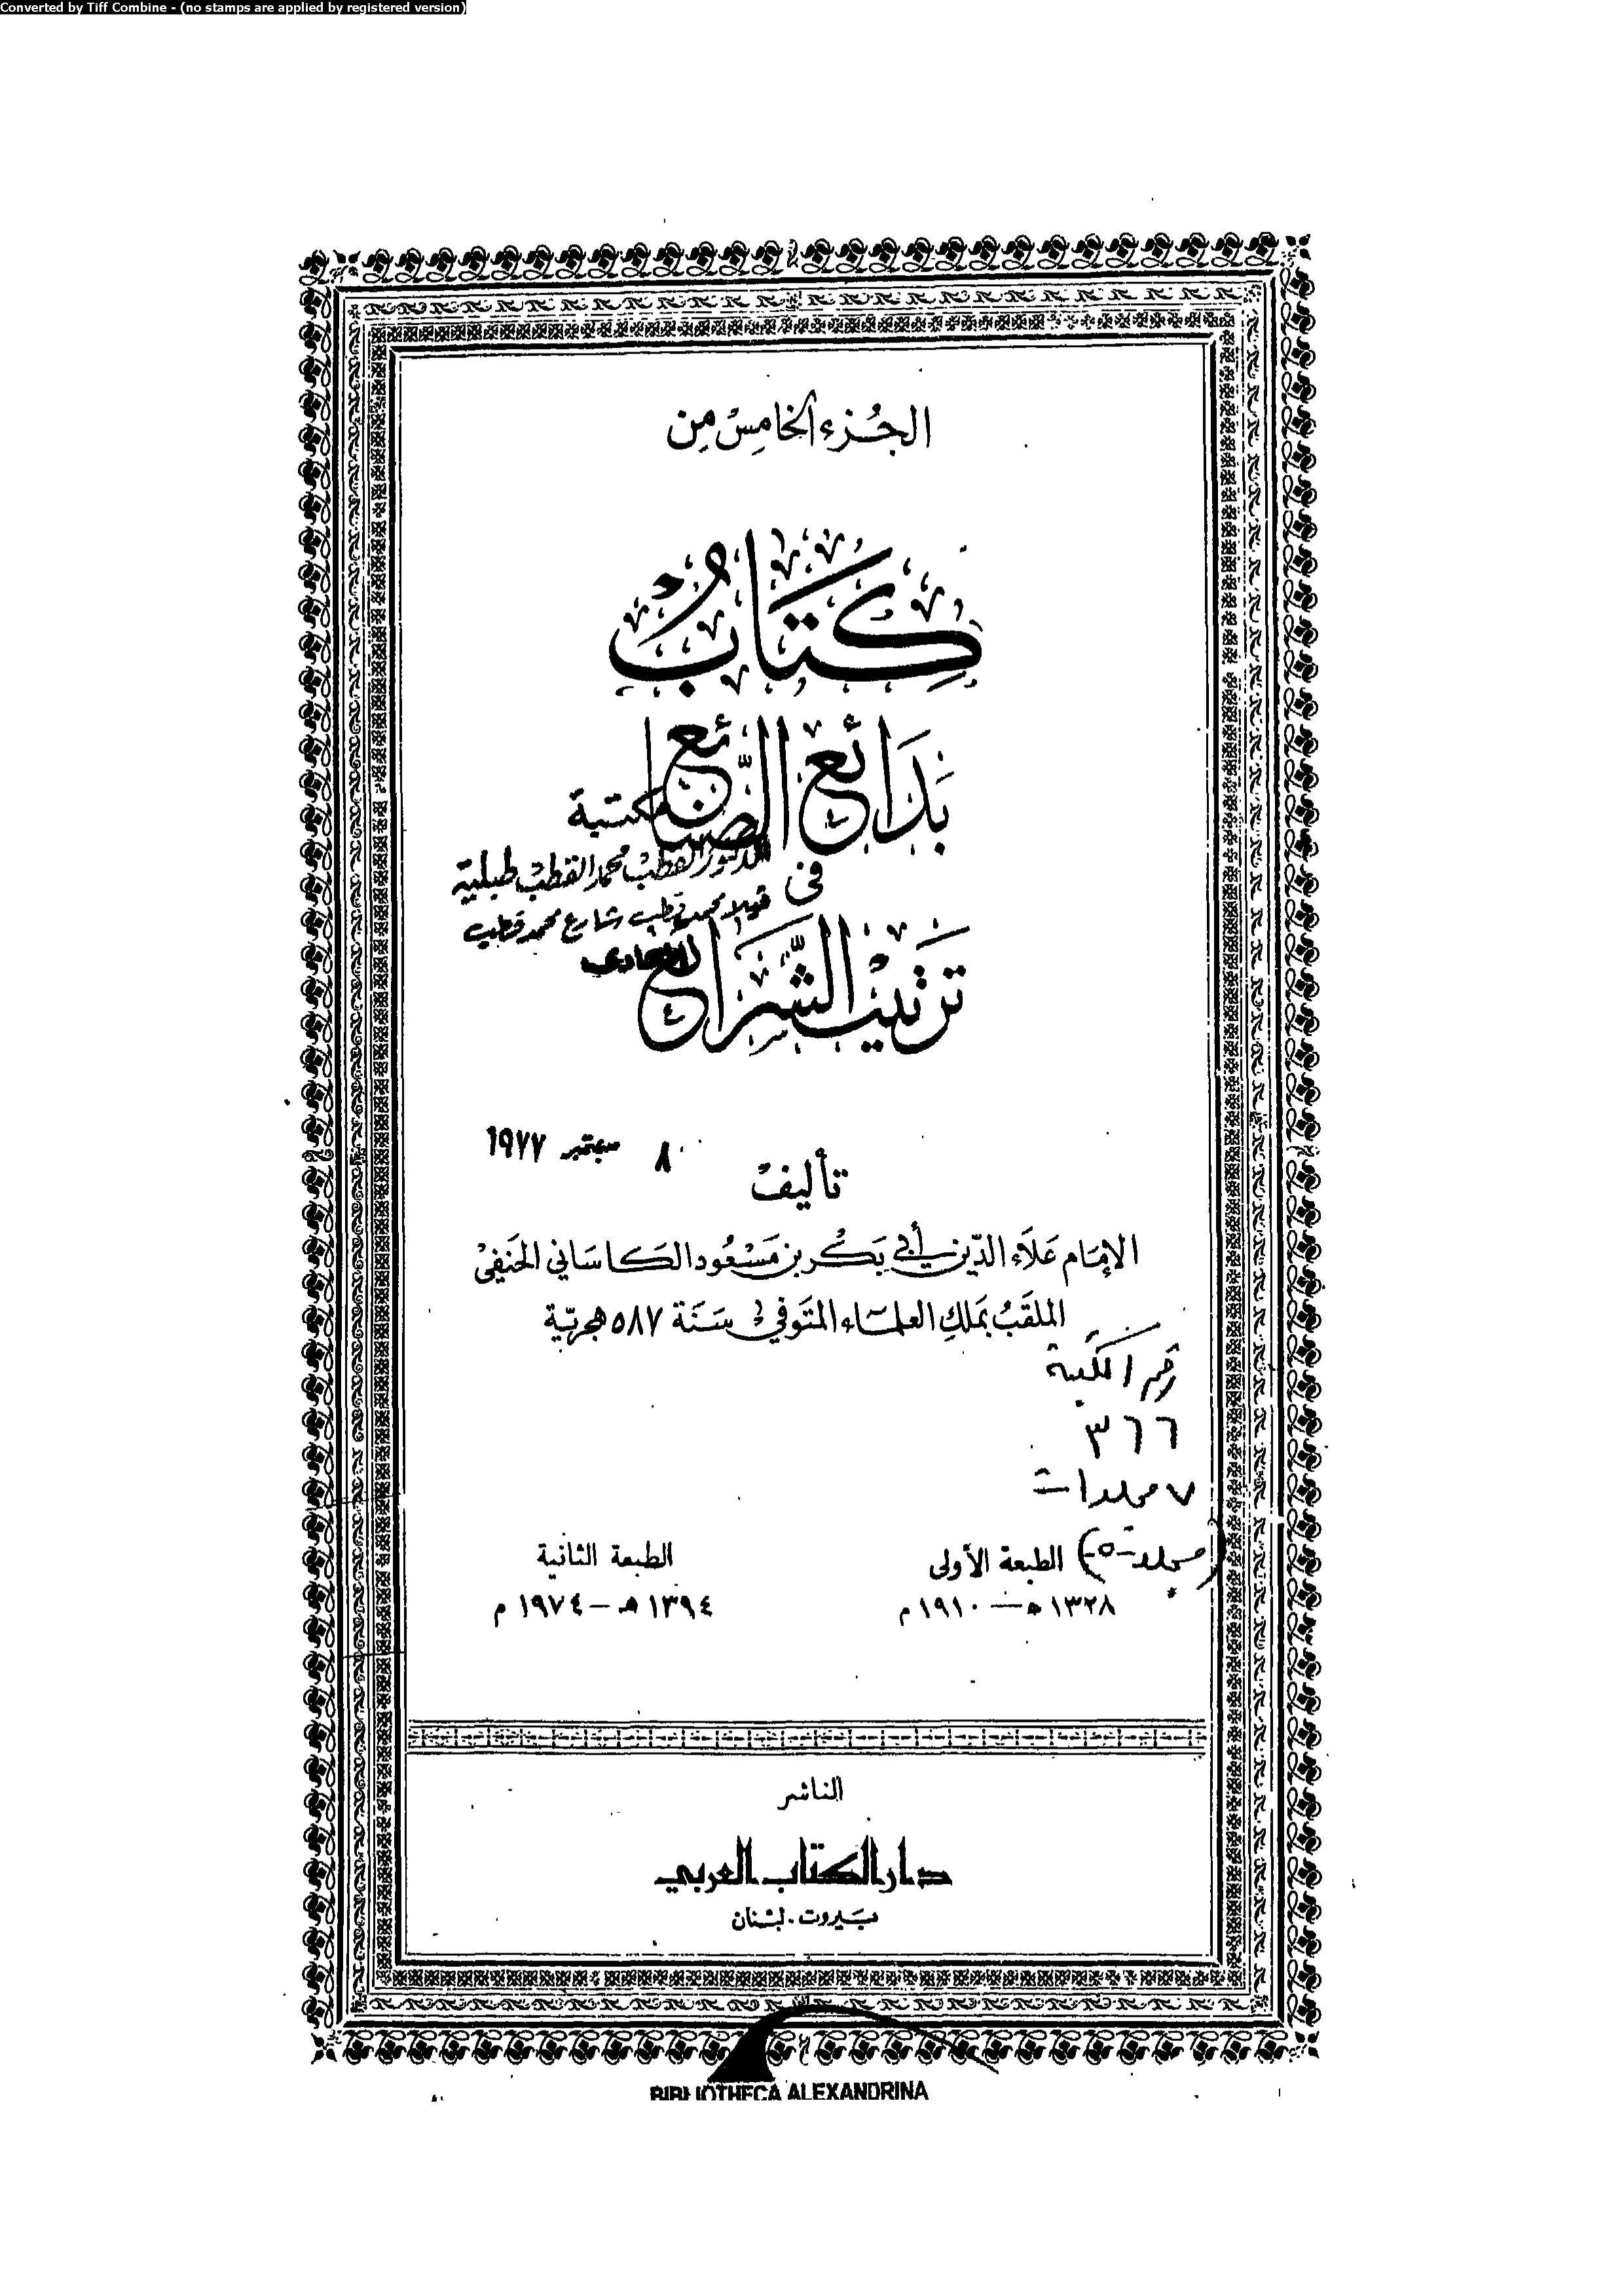 Converted by Tiff Combine - (no stamps are applied by registered version)
الجُزء الخامِسْ مِن
كِتَابُ
بَدَائع الصَّنائع
مكتبة
الدكتور القطب محمد القطب طبلية
في
فيلا محمد قطب شارع محمد قطب
المعادى
تَرتيْب الشَّرَائع
٨ سبتمبر ١٩٧٧
تأليفْ
الإمَام عَلَاء الدّين أبي بَكْر بن مَسْعُود الكاسَاني الحَنَفِىْ
الملقَبُ بمَلكِ العلمَاء المتَوفي سَنَة ٥٨٧ هجريّة
رقم المكتبة
٣٦٦
٧ مجلدات
(مجلد -٥-)
الطبعة الأولى
١٣٢٨ هـ — ١٩١٠ م
الطبعة الثانية
١٣٩٤ هـ — ١٩٧٤ م
الناشر
دار الكتاب العربي
بَيروت - لبْنان
BIBLIOTHECA ALEXANDRINA